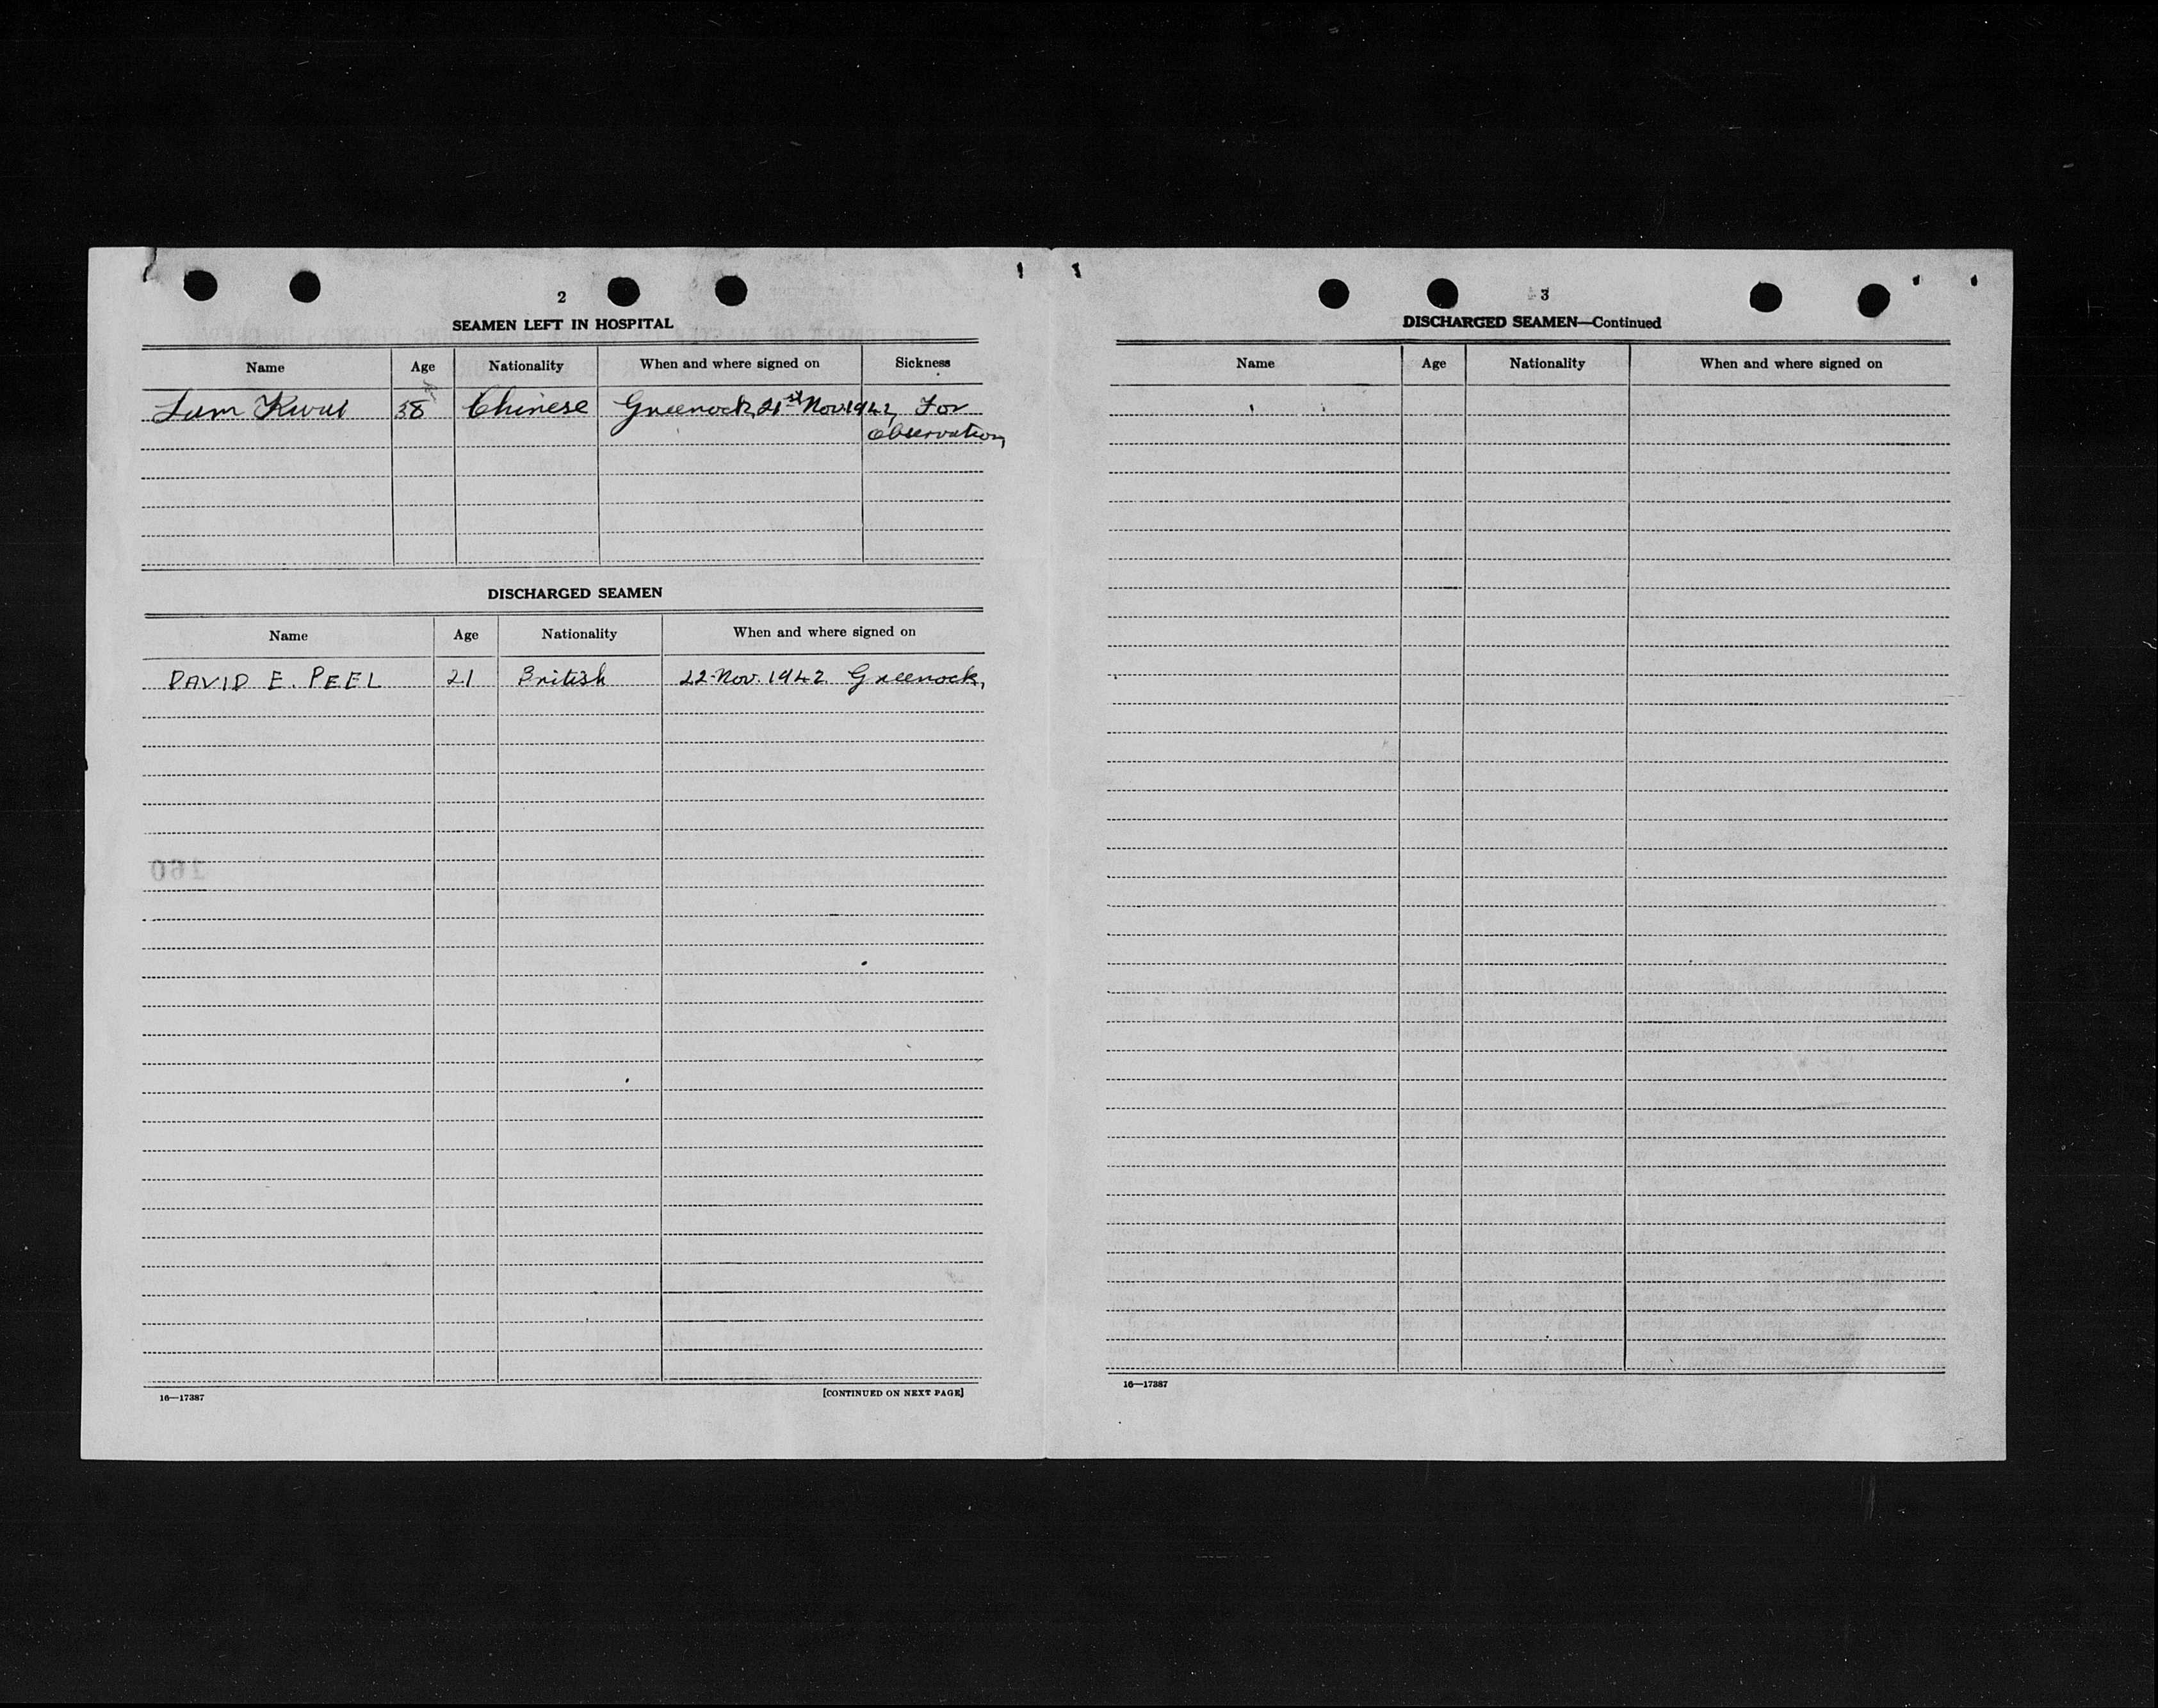 2
SEAMEN LEFT IN HOSPITAL
Name Age Nationality When and where signed on Sickness
Lum 38 Chinese Greenock, 21st Nov 1942, For
observation,
DISCHARGED SEAMEN
Name Age Nationality When and where signed on
DAVID E. PEEL 21 British 22 Nov. 1942 Greenock,
16—17387 [CONTINUED ON NEXT PAGE]
3
DISCHARGED SEAMEN—Continued
Name Age Nationality When and where signed on
16—17387